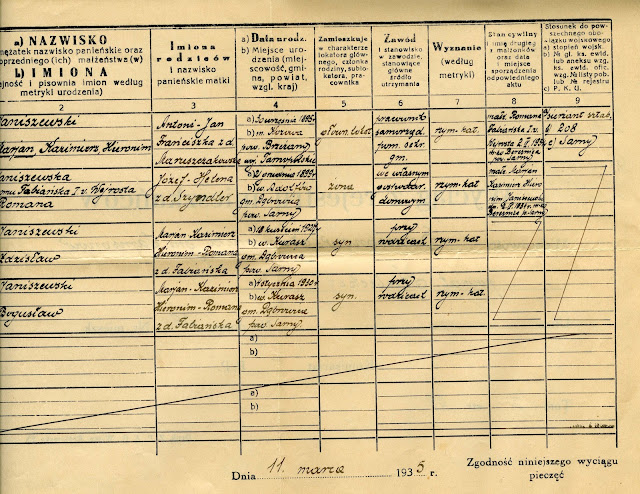 a) NAZWISKO
mężatek nazwisko panieńskie oraz
oprzedniego (ich) małżeństwa (w)
b) IMIONA
ejność i pisownia imion według
metryki urodzenia)
Imiona
rodziców
i nazwisko
panieńskie matki
a) Data urodz.
b) Miejsce uro-
dzenia (miej-
scowość, gmi-
na, powiat,
wzgl. kraj)
Zamieszkuje
w charakterze
lokatora głów-
nego, członka
rodziny, sublo-
katora, pra-
cownika
Zawód
i stanowisko
w zawodzie,
stanowiące
główne
źródło
utrzymania
Wyznanie
(według
metryki)
Stan cywilny
i imię drugiej
z małżonków
oraz data
i miejsce
sporządzenia
odpowiedniego
aktu
Stosunek do po-
wszechnego obo-
wiązku wojskowego
a) stopień wojsk.
b) № gł. ks. ewid.
lub aneksu wzgl.
ks. ewid. ofic.
wzg. № listy pob.
lub № rejestru
c) P. K. U.
2 3 4 5 6 7 8 9
aniszewski
Marjan Kazimierz, Hieronim
Antoni-Jan
Franciszka z d.
Maruszczakowska
a)
b) m.
pow. Brzeżany
woj. Tarnopolskie
główn. lokat.
samorząd.
gm.
rym. kat.
Romana
Fabiańska I v.
Wyrosta
pow. Sarny
a) sierżant sztab.
b) 208
c) Sarny
aniszewska
Fabiańska I v. Wyrosta
Romana
Józef-Helena
z d. Szyndler
a)
b) w.
gm. Dąbrowica
pow. Sarny
żona
we własnym
gospodar.
domowym
rym-kat
męż. Marjan
Kazimierz Hiero-
nim Janiszewski
Janiszewski
Zdzisław
Marjan Kazimierz
Hieronim-Romana
z d. Fabiańska
a) 18 kwiecień 1927
b) w. Kurasz
gm. Dąbrowica
pow. Sarny
syn
przy
rodzicach
rym-kat
Janiszewski
Bogusław
Marjan-Kazimierz
Hieronim-Romana
z d. Fabiańska
a) 1 stycznia 1930
b) w. Kurasz
gm. Dąbrowica
pow. Sarny
syn.
przy
rodzicach
rym-kat.
a)
b)
a)
b)
Dnia 11. marca 1935 r.
Zgodność niniejszego wyciągu
pieczęć